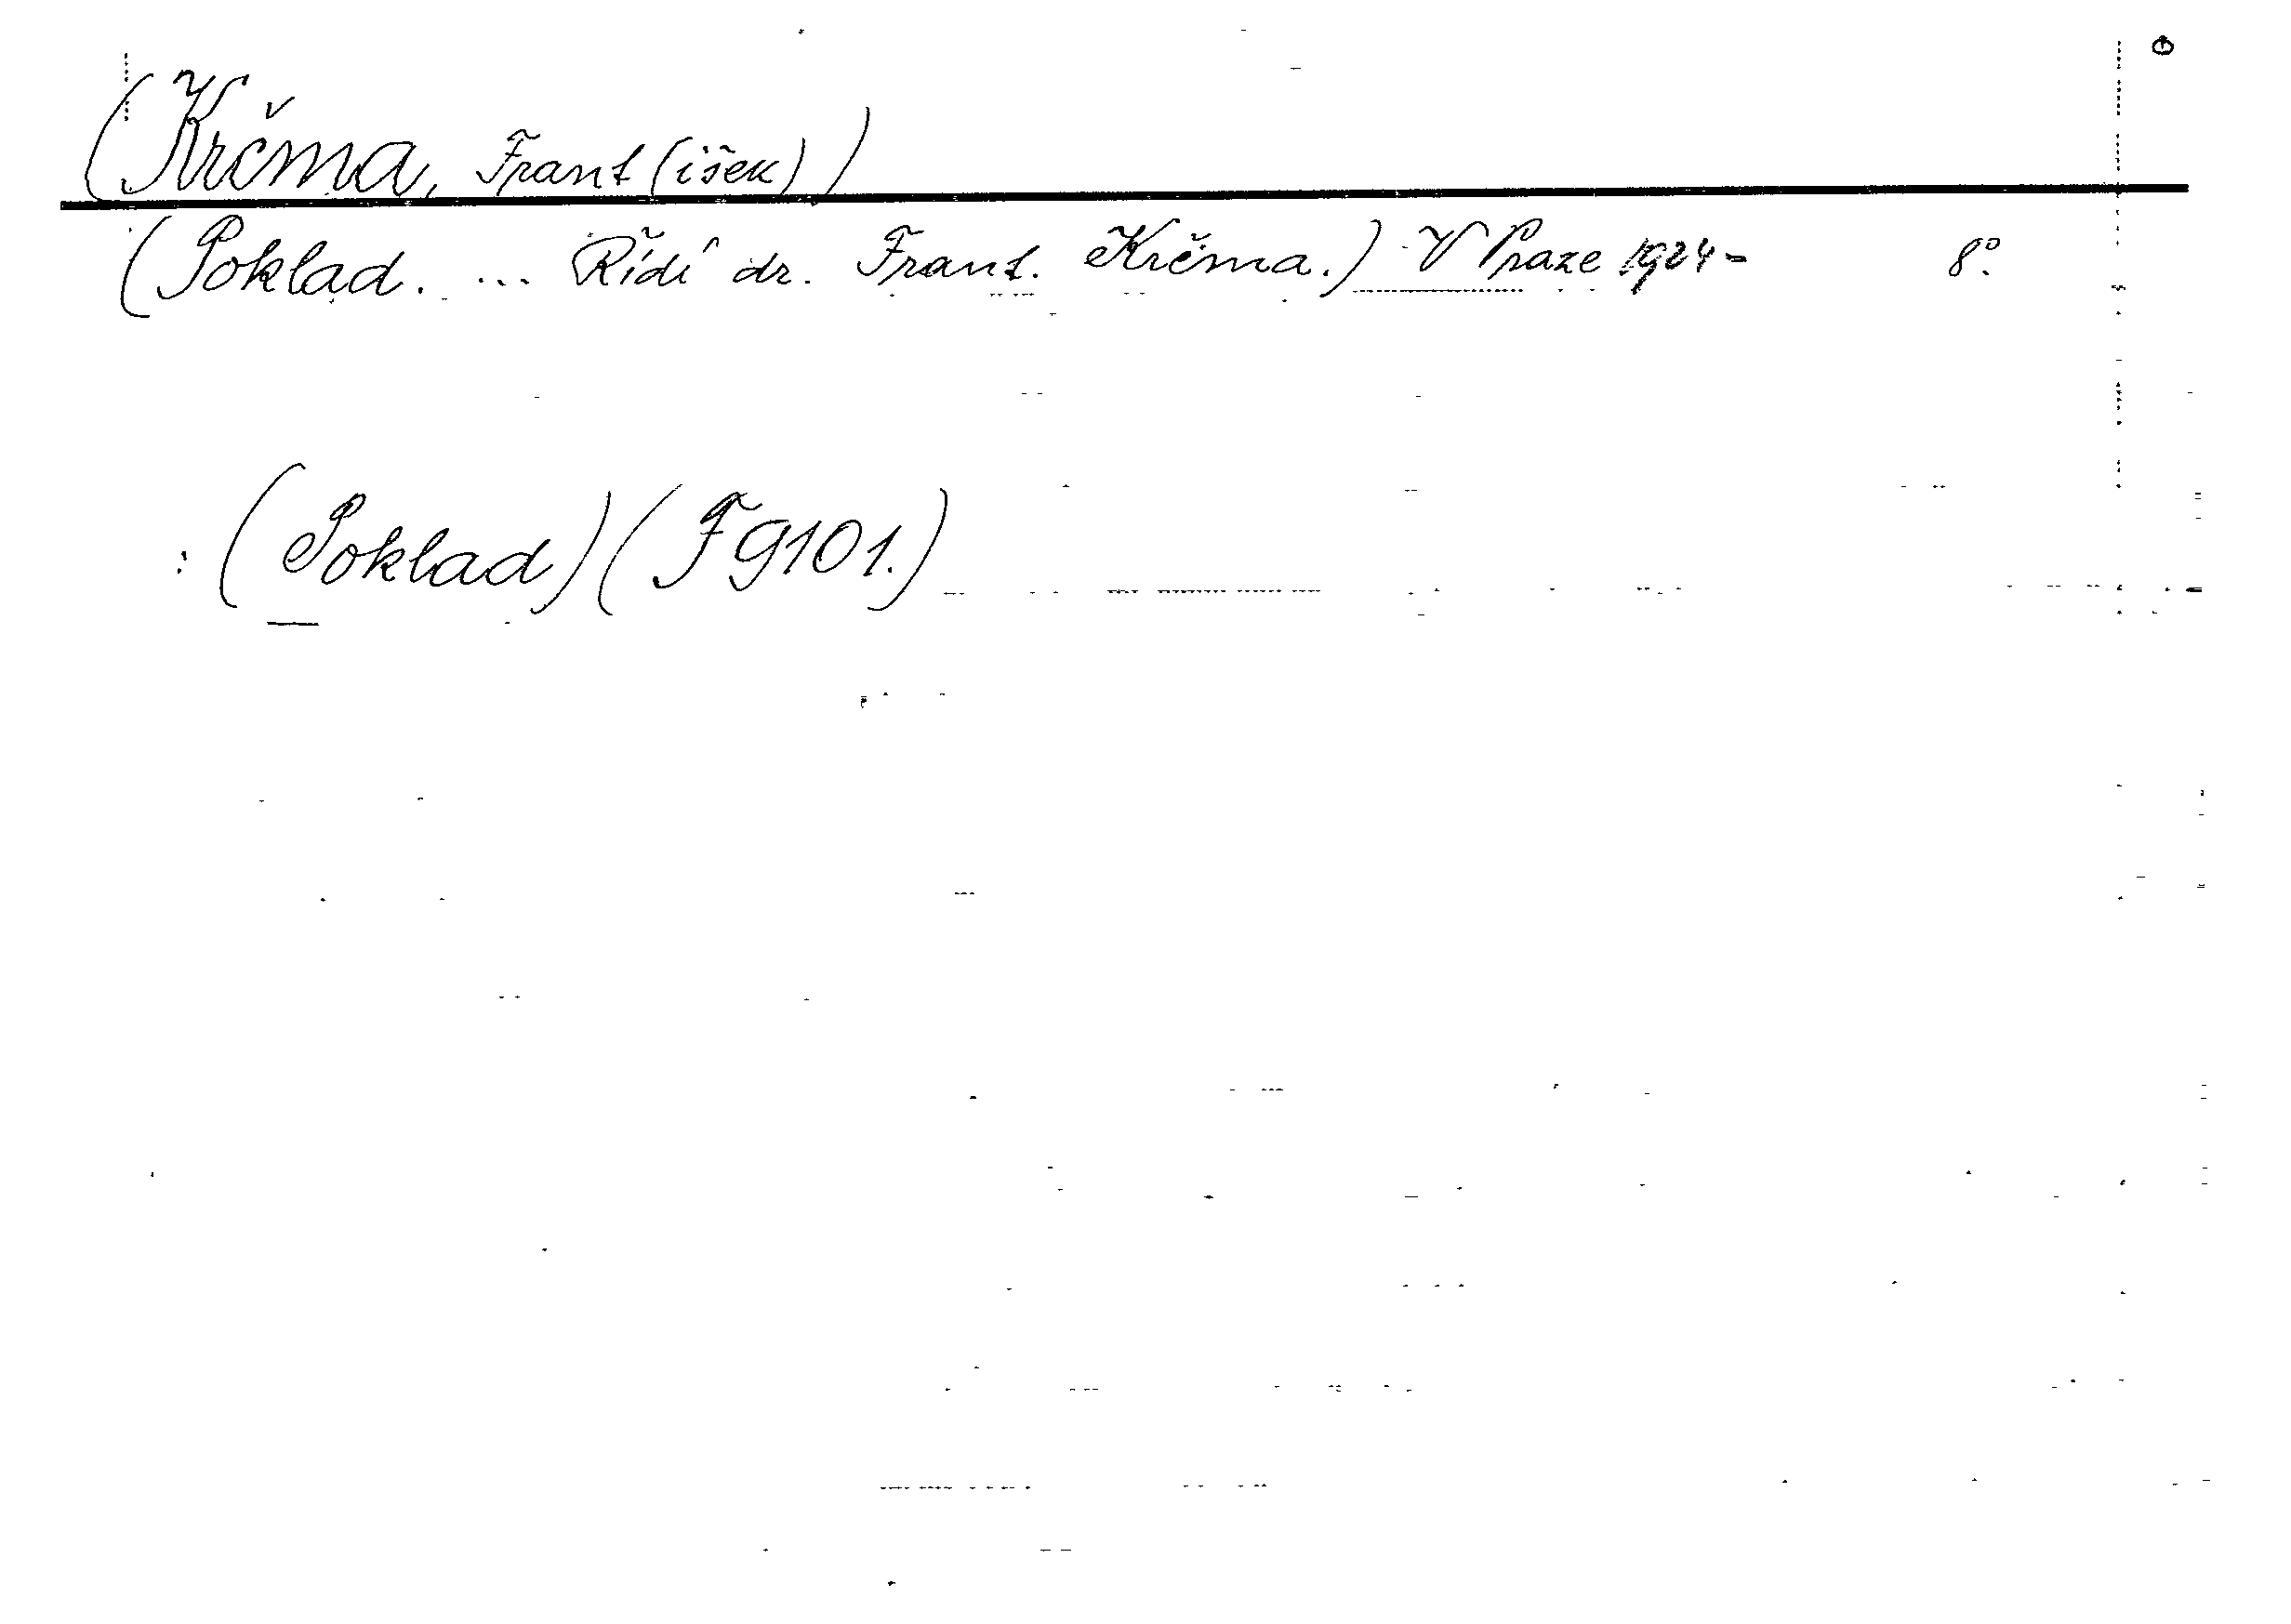 (Krčma, Frant(išek))
(Poklad. ... Řídí dr. Frant. Krčma.) V Praze 1924- 8°.
: (Poklad) (F9101.)